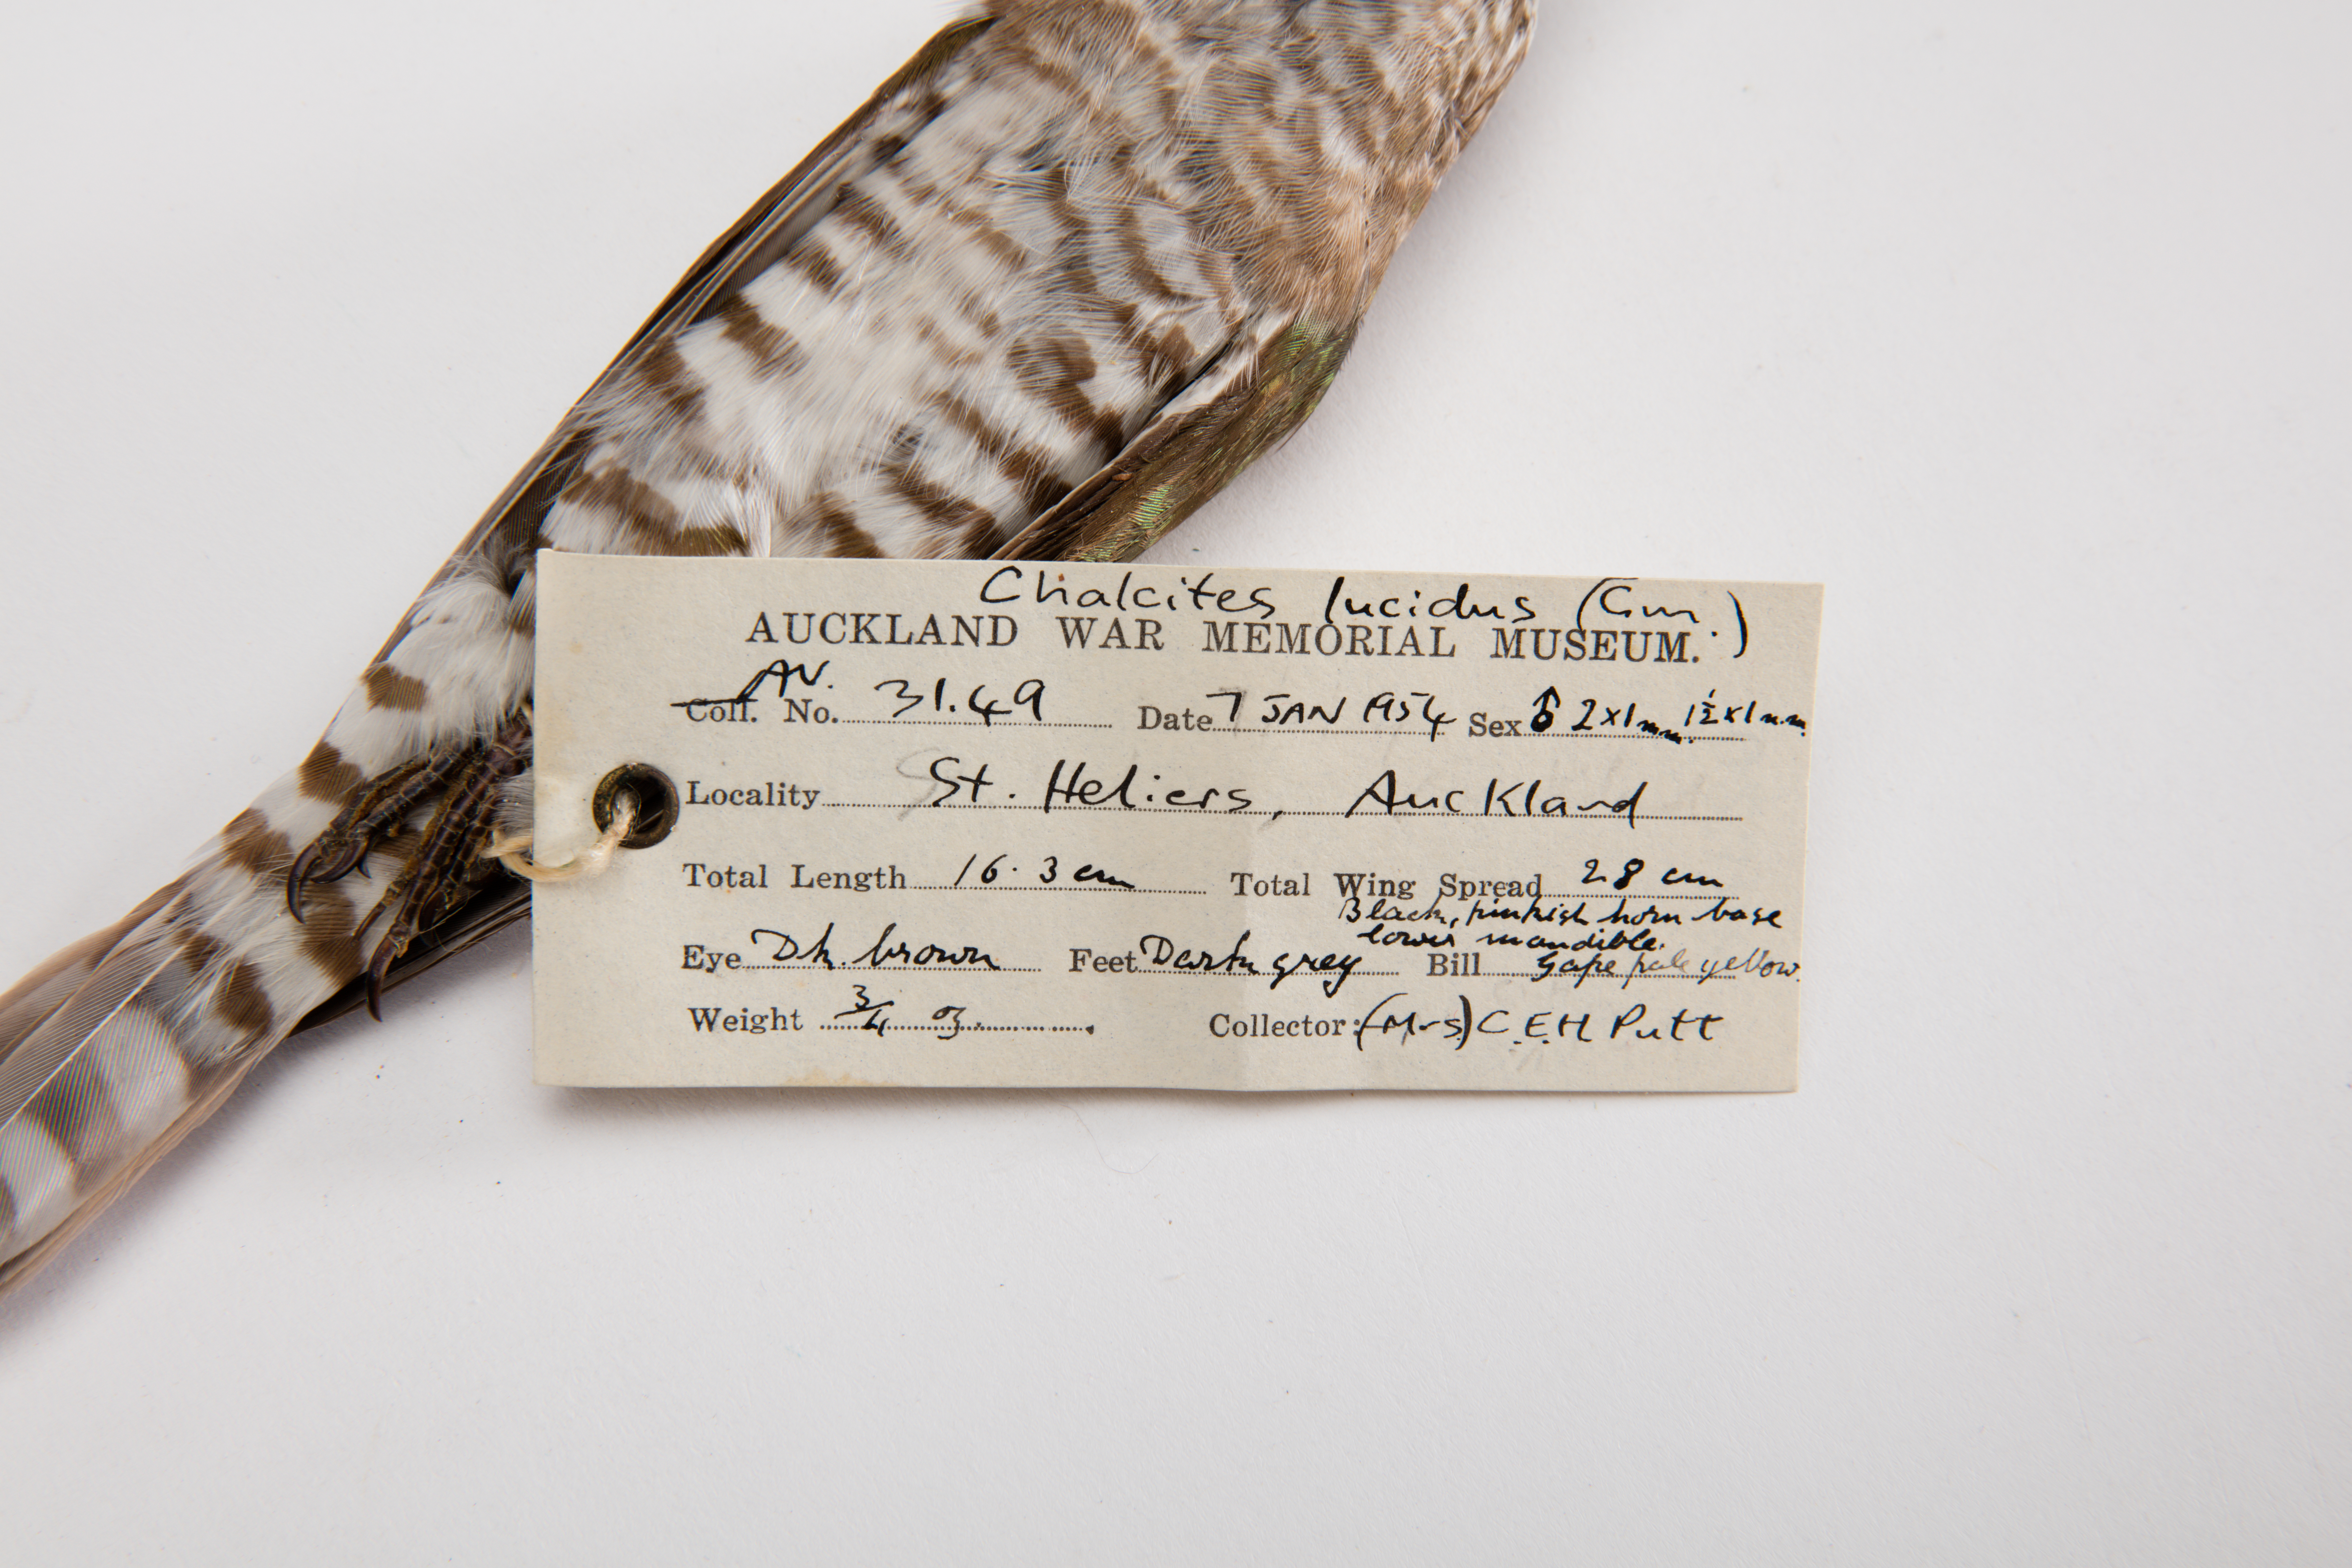 Chalcites lucidus (Gm.)
AUCKLAND WAR MEMORIAL MUSEUM.
AV.
Coll. No. 31.49 Date 7 JAN 1954 Sex ♂ 2x1mm. 1½x1mm.
Locality St. Heliers, Auckland
Total Length 16.3 cm Total Wing Spread 28 cm
Black, pinkish horn base
lower mandible.
Eye Dk. brown Feet Dark grey Bill Gape pale yellow.
Weight 3/4 oz. Collector: (Mrs) C.E.H Putt